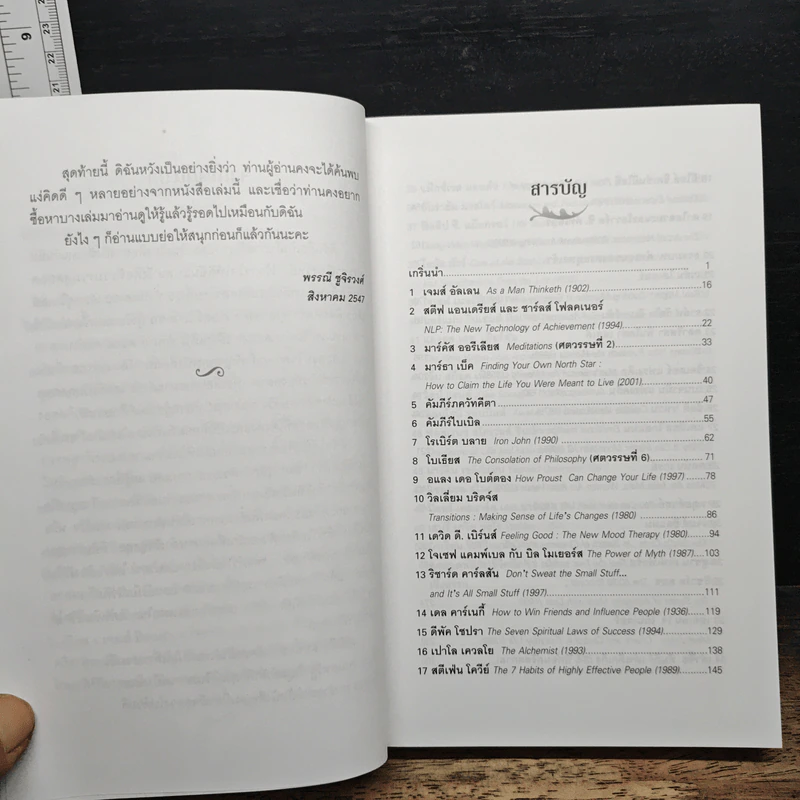 9
23
22
21
สุดท้ายนี้ ดิฉันหวังเป็นอย่างยิ่งว่า ท่านผู้อ่านคงจะได้ค้นพบ
แง่คิดดี ๆ หลายอย่างจากหนังสือเล่มนี้ และเชื่อว่าท่านคงอยาก
ซื้อหาบางเล่มมาอ่านดูให้รู้แล้วรู้รอดไปเหมือนกับดิฉัน
ยังไง ๆ ก็อ่านแบบย่อให้สนุกก่อนก็แล้วกันนะคะ
พรรณี ชูจิรวงศ์
สิงหาคม 2547
สารบัญ
เกริ่นนำ 1
1 เจมส์ อัลเลน As a Man Thinketh (1902) 16
2 สตีฟ แอนเดรียส์ และ ชาร์ลส์ โฟลคเนอร์
NLP: The New Technology of Achievement (1994) 22
3 มาร์คัส ออรีเลียส Meditations (ศตวรรษที่ 2) 33
4 มาร์ธา เบ็ค Finding Your Own North Star :
How to Claim the Life You Were Meant to Live (2001) 40
5 คัมภีร์ภควัทคีตา 47
6 คัมภีร์ไบเบิล 55
7 โรเบิร์ต บลาย Iron John (1990) 62
8 โบเธียส The Consolation of Philosophy (ศตวรรษที่ 6) 71
9 อแลง เดอ โบต์ตอง How Proust Can Change Your Life (1997) 78
10 วิลเลี่ยม บริดจ์ส
Transitions : Making Sense of Life's Changes (1980) 86
11 เดวิด ดี. เบิร์นส์ Feeling Good : The New Mood Therapy (1980) 94
12 โจเซฟ แคมพ์เบล กับ บิล โมเยอร์ส The Power of Myth (1987) 103
13 ริชาร์ด คาร์ลสัน Don't Sweat the Small Stuff...
and It's All Small Stuff (1997) 111
14 เดล คาร์เนกี้ How to Win Friends and Influence People (1936) 119
15 ดีพัค โชปรา The Seven Spiritual Laws of Success (1994) 129
16 เปาโล เควลโย The Alchemist (1993) 138
17 สตีเฟ่น โควีย์ The 7 Habits of Highly Effective People (1989) 145